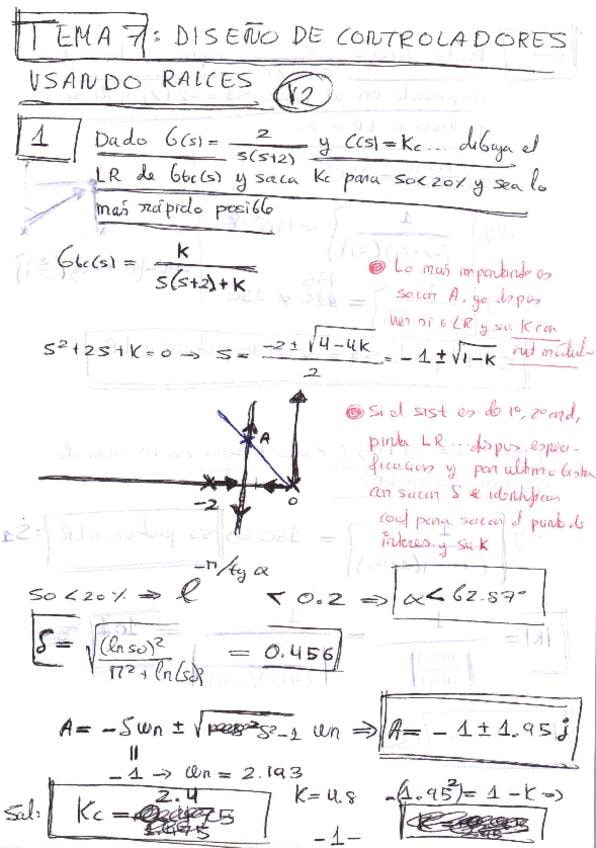 TEMA 7: DISEÑO DE CONTROLADORES
USANDO RAICES V2
1 Dado G(s) = 2/s(s+2) y C(s) = Kc... dibuja el
LR de Gbc(s) y saca Kc para so<20% y sea lo
mas rápido posible
Gbc(s) = K/s(s+2)+K
Lo mas importante es
sacar A, ya despues
LR y su K con
s²+2s+K=0 → s = -2±√4-4K/2 = -1±√1-K
A
-2
0
Si el sist es de 1º, 2º ord,
pinta LR... despues especi-
ficacion y por ultimo basta
con sacar S e identificar
coef para sacar el punto de
interes y su K
so<20% ⇒ e^-π/tg α < 0.2 ⇒ α<62.87°
δ = √(ln so)²/π²+ln(so)² = 0.456
A = -δωn ± √δ²-1 ωn ⇒ A = -1 ± 1.95j
-1 → ωn = 2.193
Sol: Kc = 2.4
K = 4.8
-(1.95²) = 1-K ⇒
-1-